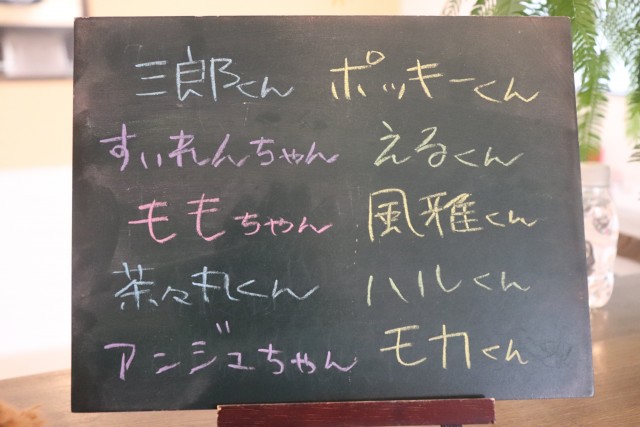 三郎くん ポッキーくん
すいれんちゃん えるくん
ももちゃん 風雅くん
茶々丸くん ハルくん
アンジュちゃん モカくん